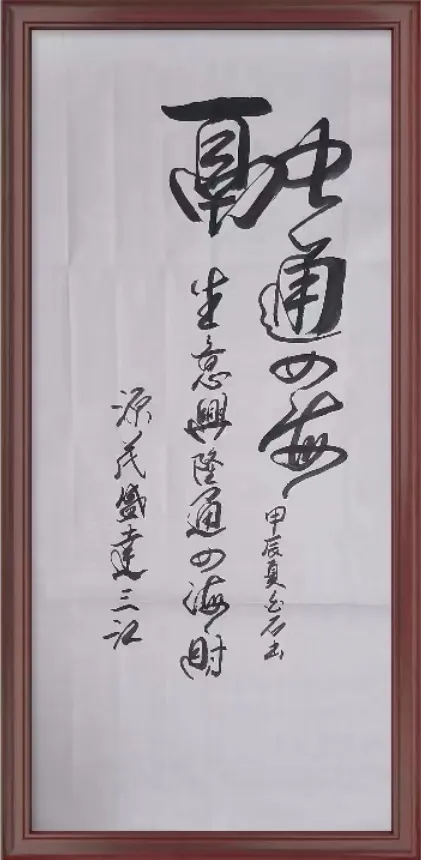 融通四海
生意興隆通四海財
源茂盛達三江
甲辰夏石书